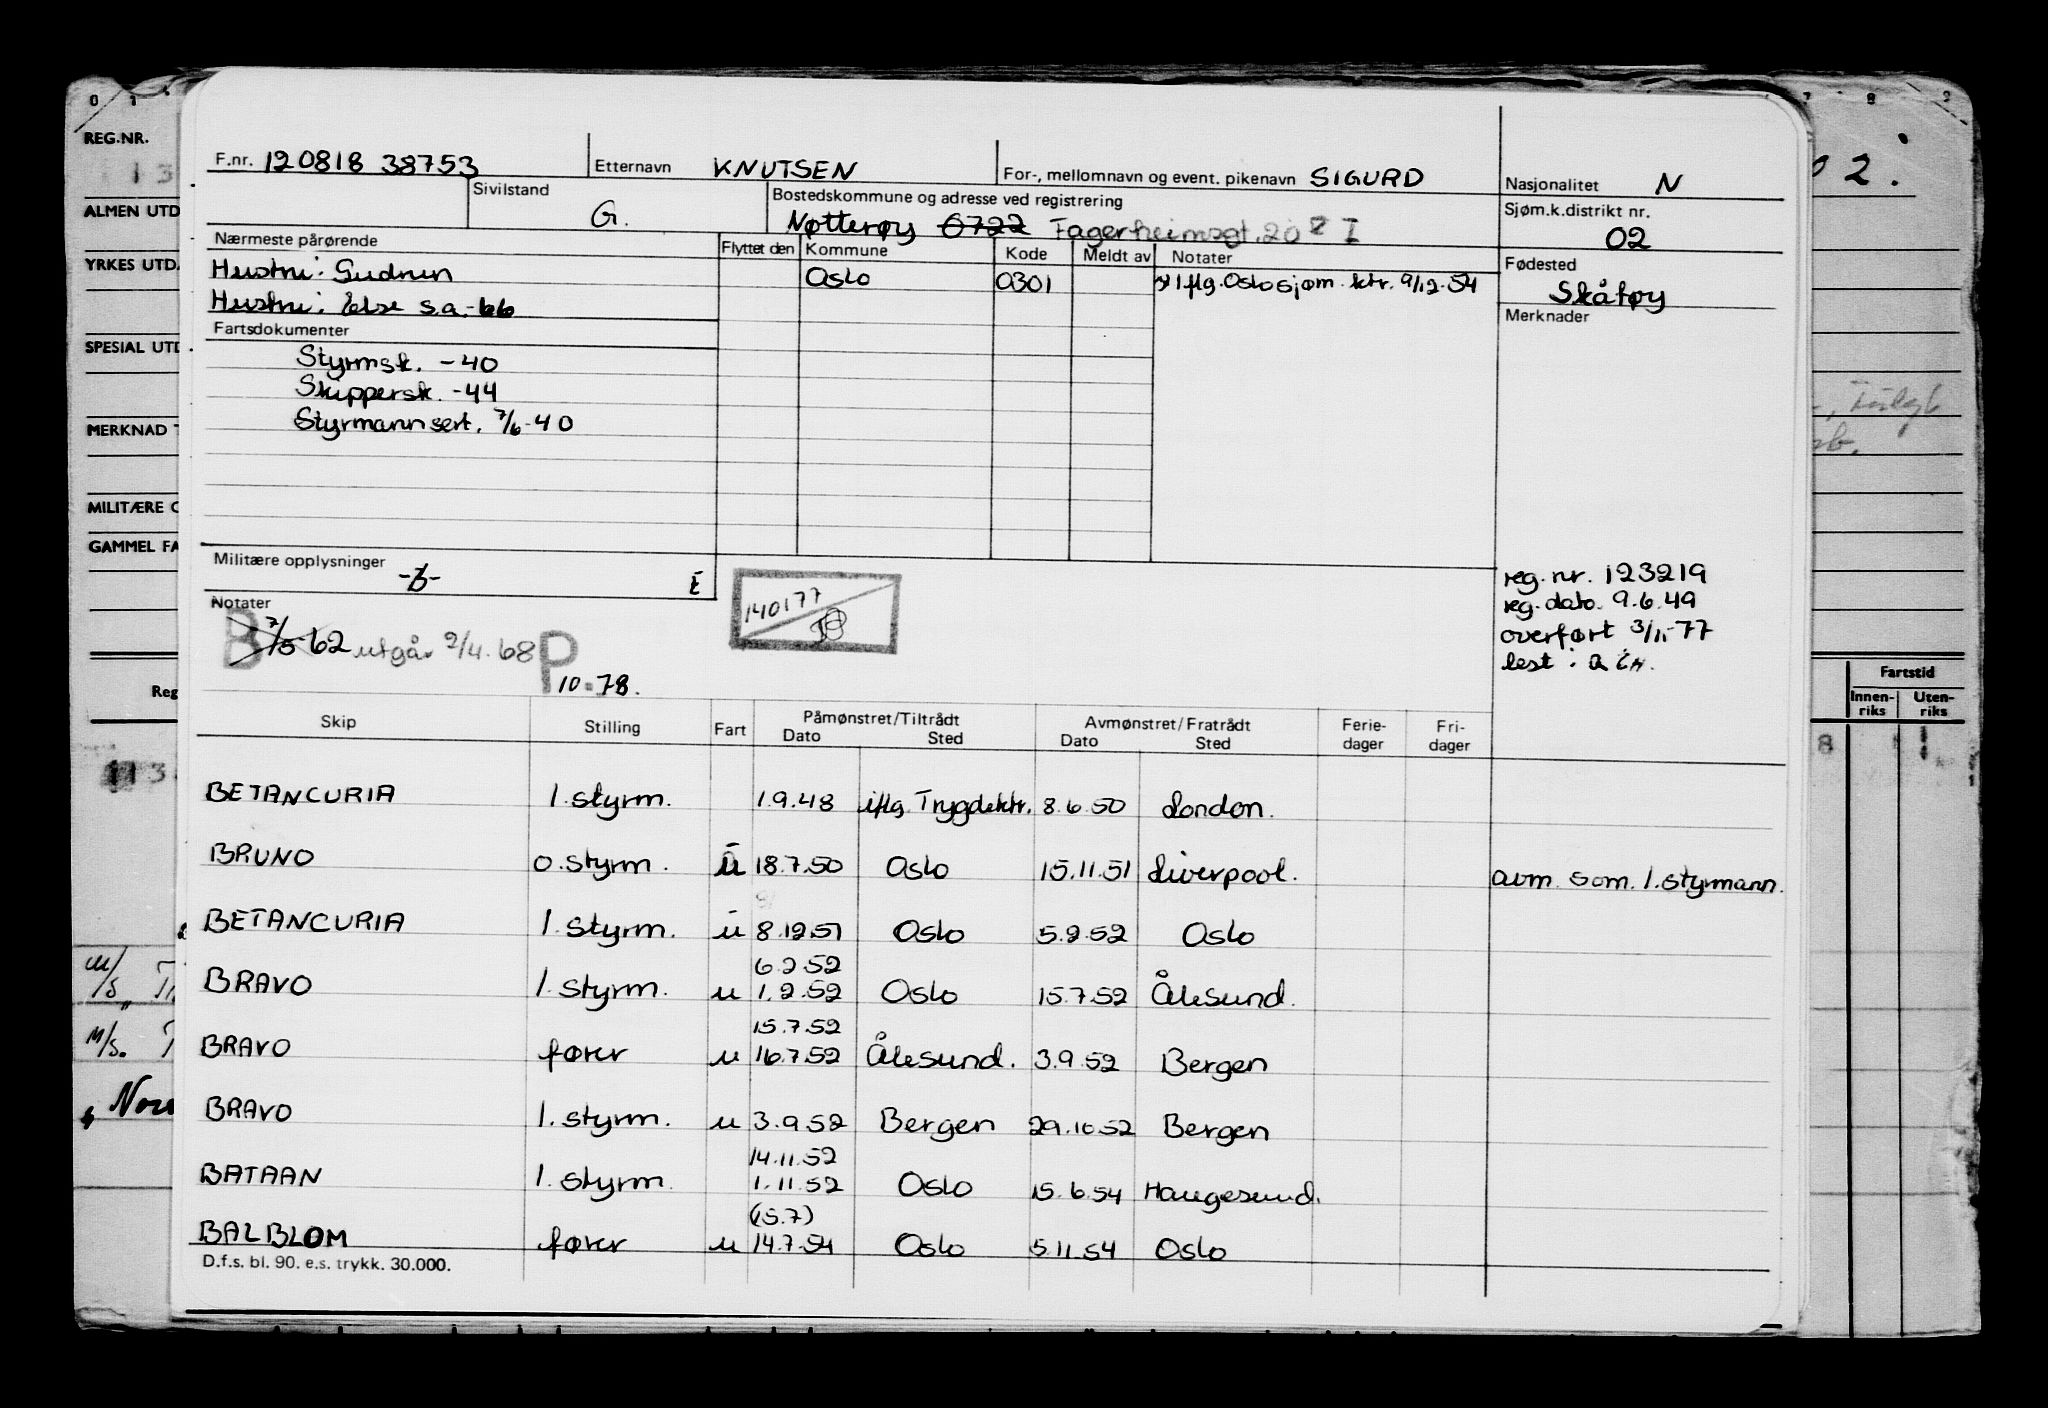 0 1
REG.NR.
ALMEN UTD
YRKES UTD.
SPESIAL UTD
MERKNAD T
MILITÆRE O
GAMMEL FA
Reg
F.nr. 120818 38753 Etternavn KNUTSEN For-, mellomnavn og event. pikenavn SIGURD Nasjonalitet N
Sivilstand G. Bostedskommune og adresse ved registrering Sjøm.k.distrikt nr. 02
Nøtterøy 0722 Fagerheimsgt. 20 I
Nærmeste pårørende Flyttet den Kommune Kode Meldt av Notater Fødested
Hustru: Gudrun Oslo 0301 Iflg. Oslo sjøm. ktr. 9/12-54 Skåtøy
Hustru: Else s.a.-66 Merknader
Fartsdokumenter
Styrmsk. -40
Skippersk. -44
Styrmannsert. 7/6-40
Militære opplysninger
reg. nr. 123219
reg. dato. 9.6.49
overført 3/11-77
lest:
Notater
140177
B 7/5 62 utgår 2/4.68 P 10-78.
Skip Stilling Fart Påmønstret/Tiltrådt Avmønstret/Fratrådt Ferie-dager Fri-dager
Dato Sted Dato Sted
BETANCURIA 1. styrm. 1.9.48 iflg. Trygdektr. 8.6.50 London.
BRUNO o. styrm. u 18.7.50 Oslo 15.11.51 Liverpool. avm. som. 1. styrmann.
BETANCURIA 1. styrm. u 8.12.51 Oslo 5.2.52 Oslo
6.2.52
BRAVO 1. styrm. u 1.2.52 Oslo 15.7.52 Ålesund.
15.7.52
BRAVO fører u 16.7.52 Ålesund. 3.9.52 Bergen
BRAVO 1. styrm. u 3.9.52 Bergen 29.10.52 Bergen
14.11.52
BATAAN 1. styrm. 1.11.52 Oslo 15.6.54 Haugesund.
(15.7)
BALBLOM fører u 14.7.54 Oslo 5.11.54 Oslo
D.f.s. bl. 90. e.s. trykk. 30.000.
Fartstid
Innen-riks Uten-riks